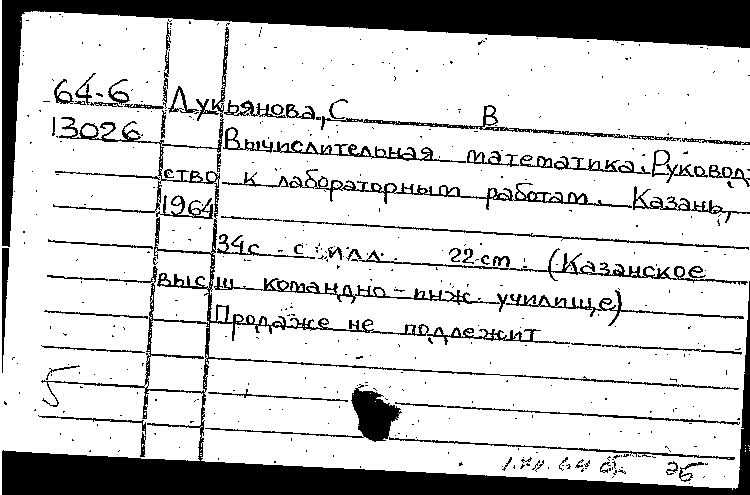 64-6 Лукьянова, С В
13026 Вычислительная математика. Руковод-
ство к лабораторным работам. Казань,
1964
34с. с илл. 22 cm. (Казанское
высш командно-инж. училище)
Продаже не подлежит
5